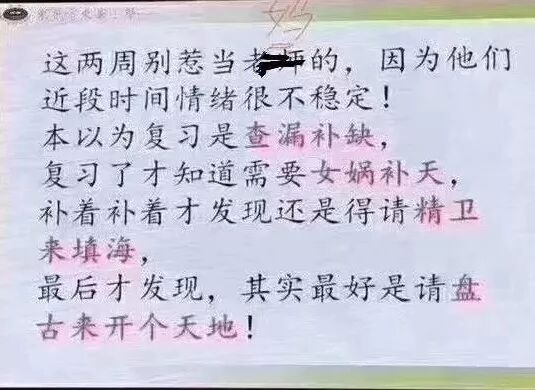 妈
这两周别惹当老师的，因为他们
近段时间情绪很不稳定！
本以为复习是查漏补缺，
复习了才知道需要女娲补天，
补着补着才发现还是得请精卫
来填海，
最后才发现，其实最好是请盘
古来开个天地！